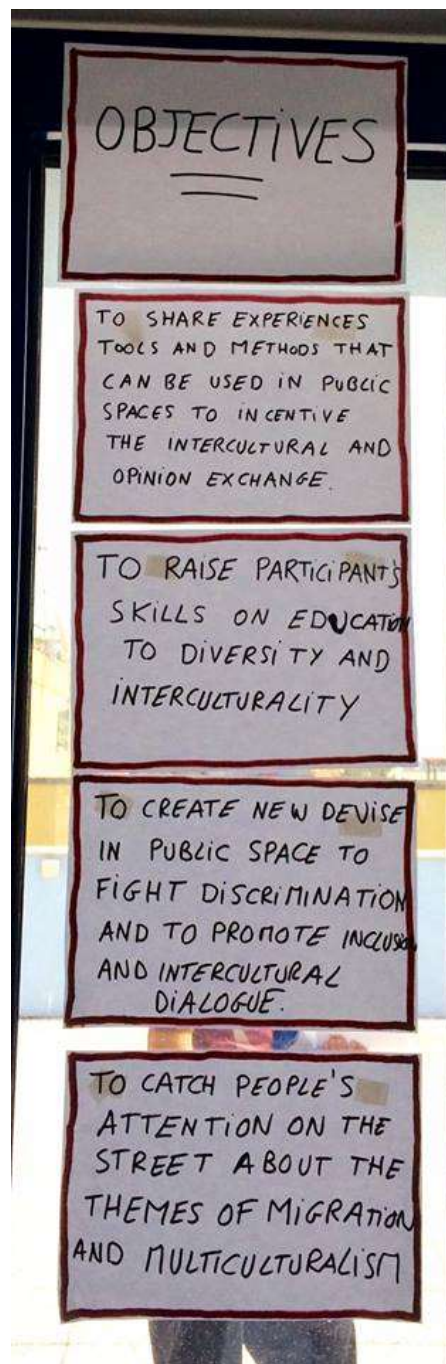 OBJECTIVES
TO SHARE EXPERIENCES
TOOLS AND METHODS THAT
CAN BE USED IN PUBLIC
SPACES TO INCENTIVE
THE INTERCULTURAL AND
OPINION EXCHANGE.
TO RAISE PARTICIPANT'S
SKILLS ON EDUCATION
TO DIVERSITY AND
INTERCULTURALITY
TO CREATE NEW DEVISE
IN PUBLIC SPACE TO
FIGHT DISCRIMINATION
AND TO PROMOTE INCLUSION
AND INTERCULTURAL
DIALOGUE.
TO CATCH PEOPLE'S
ATTENTION ON THE
STREET ABOUT THE
THEMES OF MIGRATION
AND MULTICULTURALISM